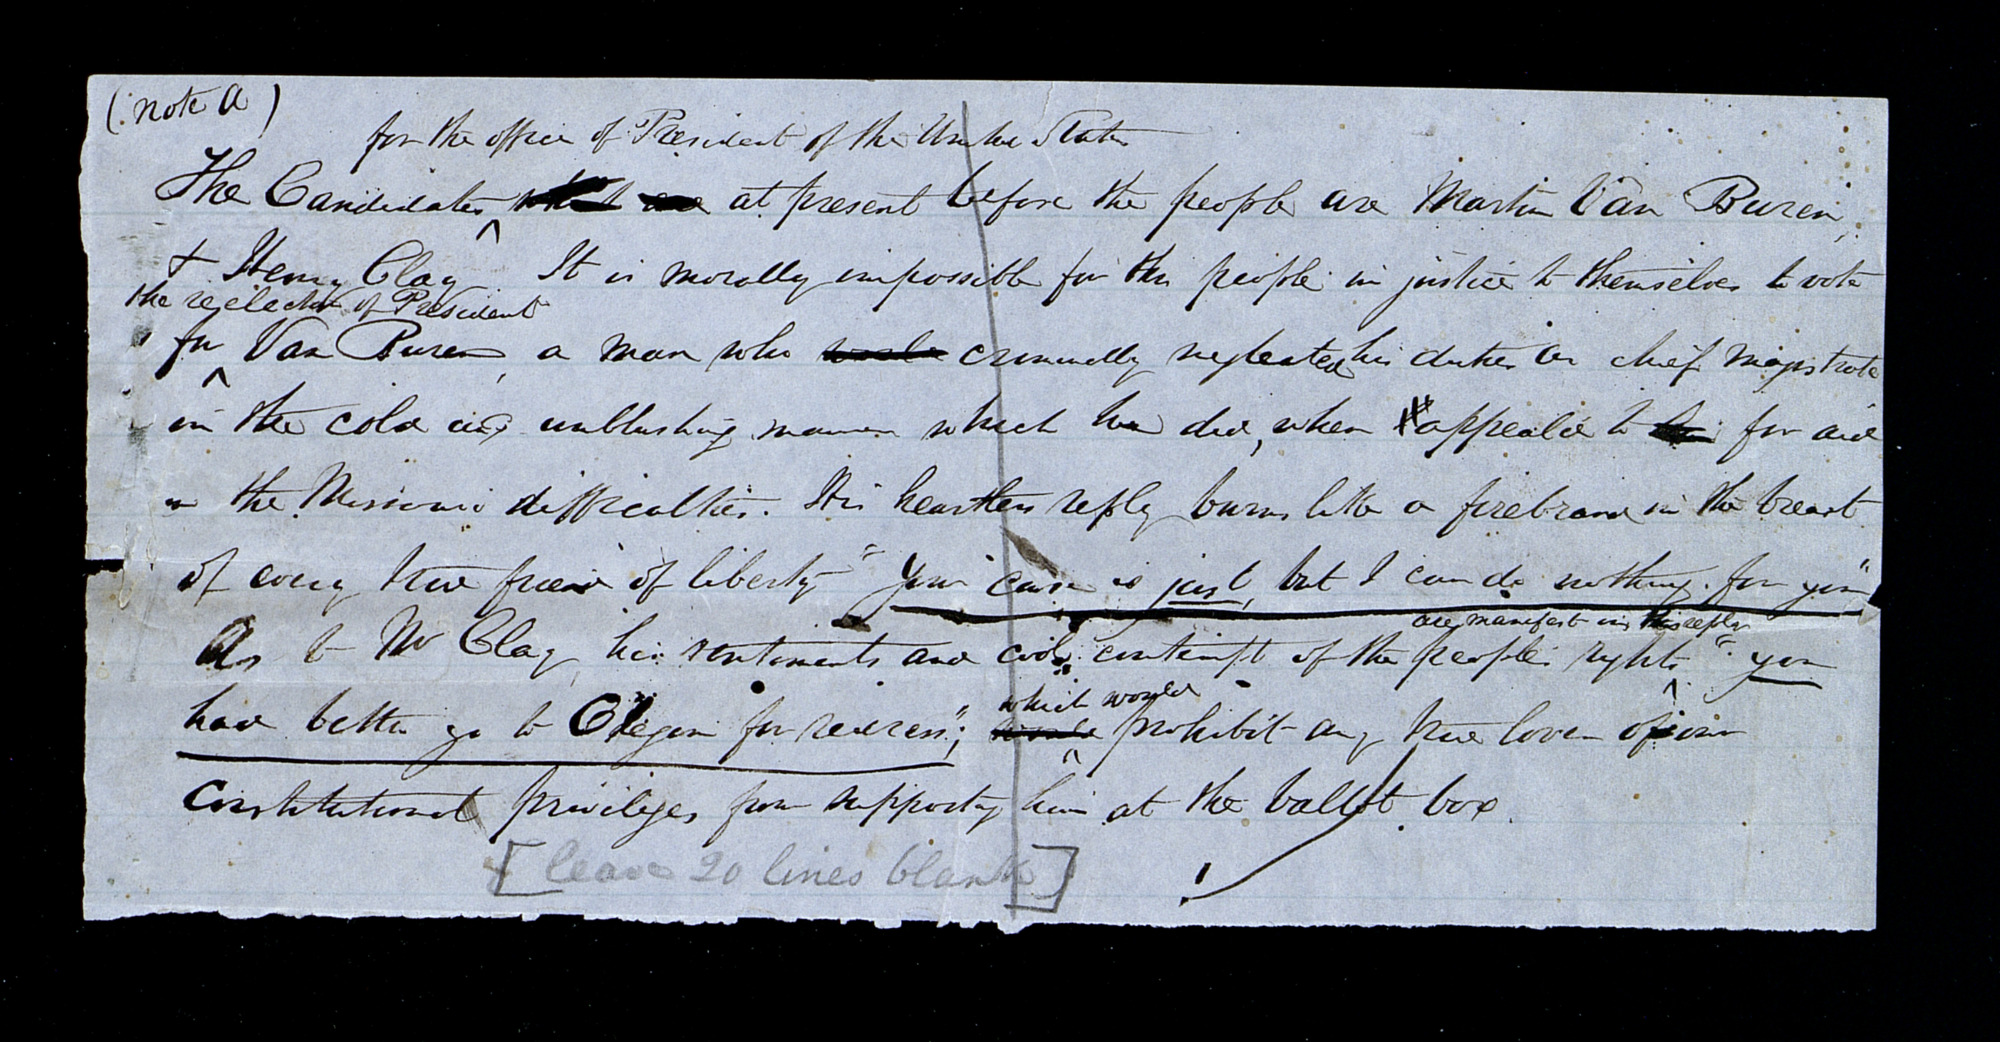 (note A)
for the office of President of the United States
The Candidates at present before the people are Martin Van Buren,
& Henry Clay It is morally impossible for this people in justice to themselves to vote
the reelection of President
for Van Buren, a man who criminally neglected his duties as chief magistrate
in the cold and unblushing manner which he did, when appealed to for aid
in the Missouri difficulties. His heartless reply burns like a firebrand in the breast
of every true friend of liberty "your cause is just, but I can do nothing for you"
are manifest in his reply
As to Mr Clay, his sentiments and cool contempt of the people's rights "you
which would
have better go to Oregon for redress"; prohibit any true lover of our
Constitutional privileges from supporting him at the ballot box.
[leave 20 lines blank]